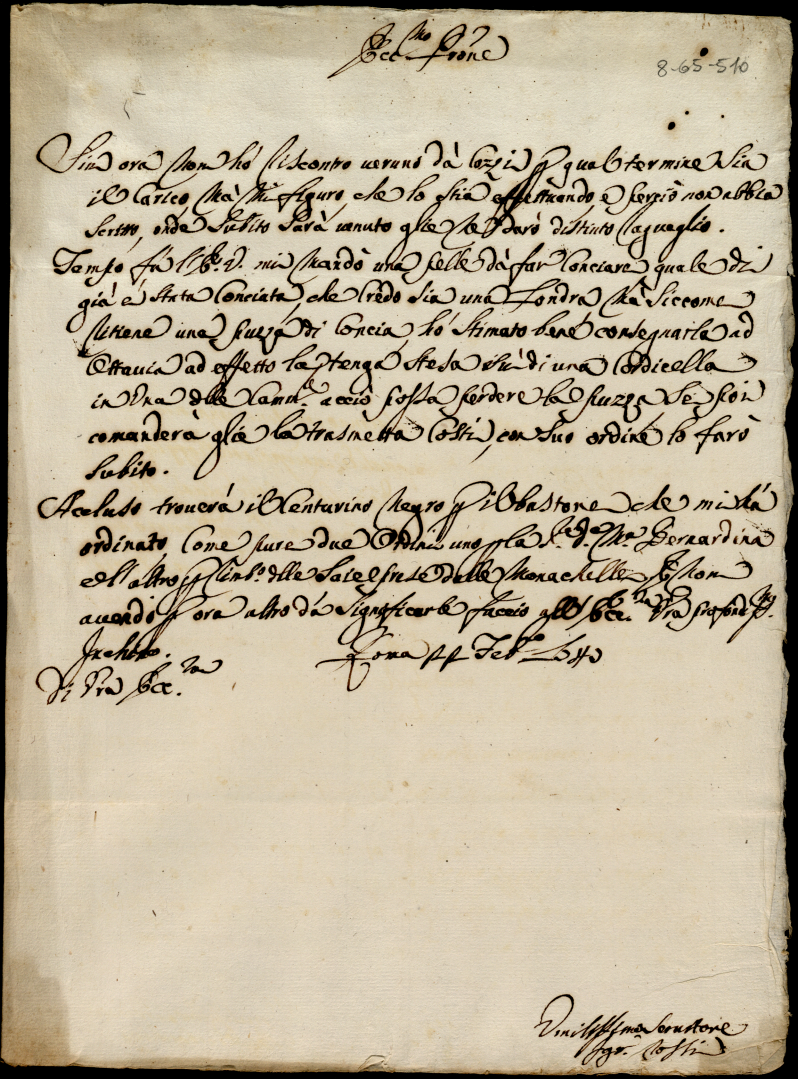 Ecc.mo Prone
8-65-510
Sin ora non hò riscontro veruno dà Cozzi p qual termine sia
il Carico, mà mi figuro, che lo stia effettuando e perciò non abbia
scritto, onde subito sarà venuto glie ne darò distinto raguaglio.
Tempo fà l'E. V. mi mandò una pelle dà far Conciare quale di
già è stata Conciata, che Credo sia una Londra mà siccome
ritiene una puzza di Concia, hò stimato bene consegnarla ad
Ottavia ad effetto la tenga stesa sù di una Cordicella
in una delle Cam.re acciò possa perdere la puzza se poi
comanderà glie la trasmetta Costì, con suo ordine lo farò
subito.
Accluso troverà il Centurino Negro p il bastone che mi hà
ordinato, Come pure due Ordini uno p la S.ra d. Bernardina
e l'altro p delle delle Monachelle e non
avendo p ora altro dà significarle faccio all' Ecc.za Vra profond.ma
Inchino.
Di Vra Ecc.za
Roma Feb.
Umilissimo Servitore